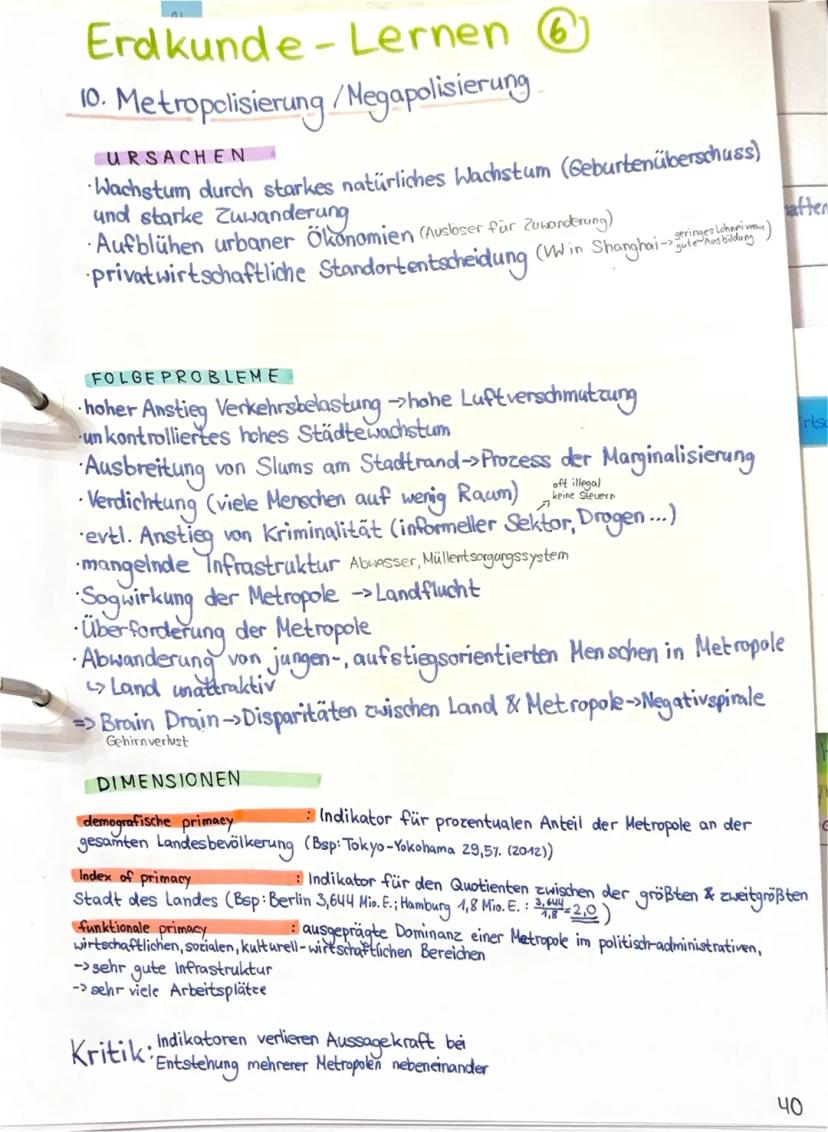 Erdkunde - Lernen 6
10. Metropolisierung / Megapolisierung
URSACHEN
· Wachstum durch starkes natürliches Wachstum (Geburtenüberschuss)
und starke Zuwanderung
· Aufblühen urbaner Ökonomien (Auslöser für Zuwanderung)
· privatwirtschaftliche Standortentscheidung (VW in Shanghai -> geringes Lohnniveau gute Ausbildung)
FOLGEPROBLEME
· hoher Anstieg Verkehrsbelastung -> hohe Luftverschmutzung
· unkontrolliertes hohes Städtewachstum
· Ausbreitung von Slums am Stadtrand -> Prozess der Marginalisierung
· Verdichtung (viele Menschen auf wenig Raum)
oft illegal
keine Steuern
· evtl. Anstieg von Kriminalität (informeller Sektor, Drogen ...)
· mangelnde Infrastruktur Abwasser, Müllentsorgungssystem
· Sogwirkung der Metropole -> Landflucht
· Überforderung der Metropole
· Abwanderung von jungen-, aufstiegsorientierten Menschen in Metropole
↳ Land unattraktiv
=> Brain Drain -> Disparitäten zwischen Land & Metropole -> Negativspirale
Gehirnverlust
DIMENSIONEN
demografische primacy : Indikator für prozentualen Anteil der Metropole an der
gesamten Landesbevölkerung (Bsp: Tokyo-Yokohama 29,5% (2012))
Index of primacy : Indikator für den Quotienten zwischen der größten & zweitgrößten
Stadt des Landes (Bsp: Berlin 3,644 Mio. E.; Hamburg 1,8 Mio. E. : 3,644/1,8 = 2,0 )
funktionale primacy : ausgeprägte Dominanz einer Metropole im politisch-administrativen,
wirtschaftlichen, sozialen, kulturell-wirtschaftlichen Bereichen
-> sehr gute Infrastruktur
-> sehr viele Arbeitsplätze
Kritik: Indikatoren verlieren Aussagekraft bei
Entstehung mehrerer Metropolen nebeneinander
40